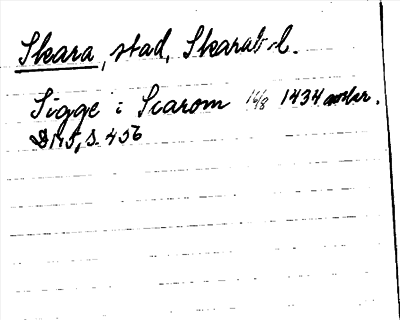 Skara, stad, Skarab. l.
Sigge i Scarom 16/8 1434 avskr.
BNF5, s. 456